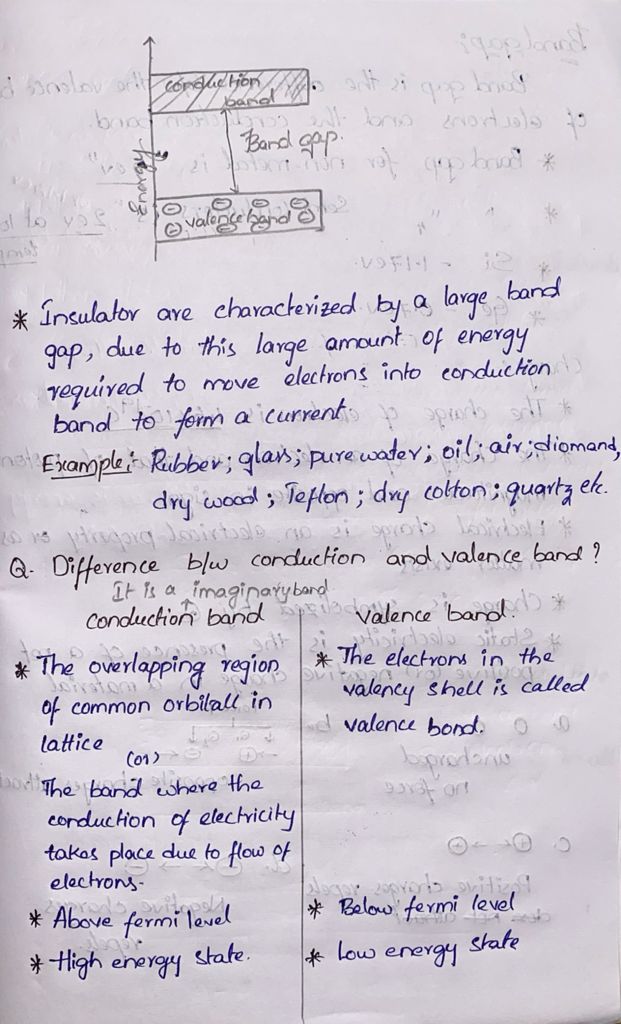 conduction
band
Band gap.
Energy
valence band
* Insulator are characterized by a large band
gap, due to this large amount of energy
required to move electrons into conduction
band to form a current.
Example:- Rubber; glass; pure water; oil; air; diomand,
dry wood; Teflon; dry cotton; quartz etc.
Q. Difference b/w conduction and valence band?
It is a imaginary band
conduction band
* The overlapping region
of common orbitall in
lattice
(or)
The band where the
conduction of electricity
takes place due to flow of
electrons.
* Above fermi level
* High energy state.
valence band.
* The electrons in the
valency shell is called
valence bond.
* Below fermi level
* Low energy state